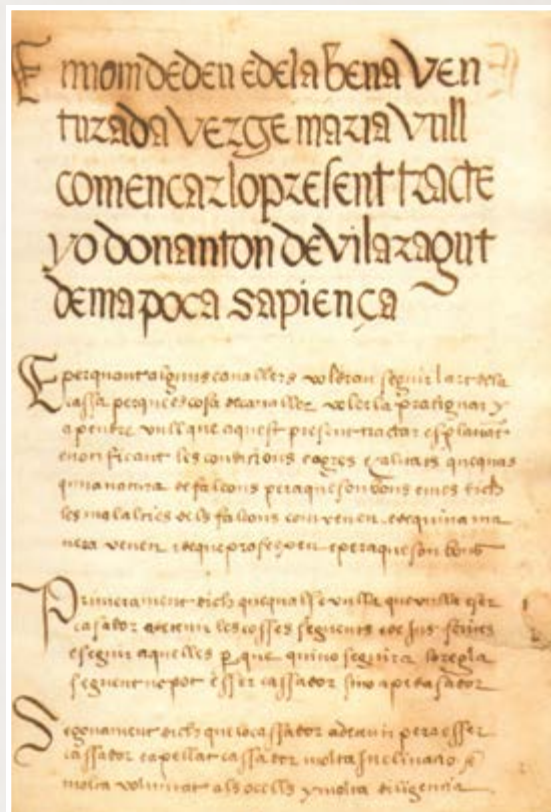 En nom de deu e dela bena ven
turada verge maria vull
comencar lo present tracte
yo don anton de vilaragut
de ma poca sapiença
E per quant alguns cavallers voldran seguir l art dela
cassa perque es cosa de cavaller voler la pratiquar y
apendre vull que aquest present tractat
e notificant les condicions e qualitats
quina natura de falcons pera que son bons e mes dich
les malalties dels falcons com venen e de quina ma
nera venen e de que pera que son bons
Primerament dich que qualsevulla que vulla eser
casador a de tenir les cosses seguents
e seguir aquelles per que qui no seguira la regla
seguent no pot esser cassador sino apedasador
Segonament dich que lo cassador a de tenir pera esser
cassador e apellat cassador molta inclinacio
molta voluntat als ocells y molta diligencia